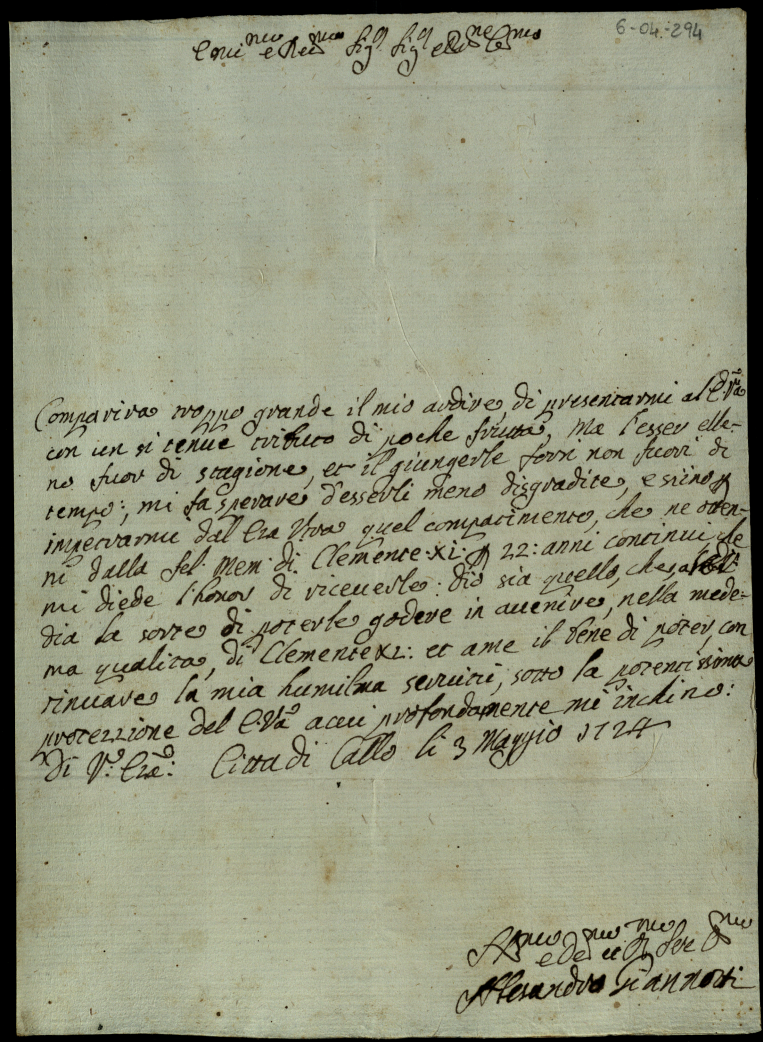 6-04-294
Emi.mo e Re.mo Sig.r Sig.r e
Comparira troppo grande il mio ardire, di presentarmi al E. Va
con un si tenue tributo di poche frutta, Ma l'esser elle-
no fuor di stagione, et il giungerle forsi non fuori di
tempo; mi fa sperare d'esserli meno disgradite, e sino p
impetrarmi dal Eza Vtra quel compatimento, che ne otten-
ni dalla fel: Mem: di Clemente XI: p 22: anni continui che
mi diede l'honor di riceuerle: dio sia quello, che a
dia la sorte di poterle godere in auenire, nella mede-
ma qualita, di Clemente XI: et ame il bene di poter, con
tinuare la mia humilma seruitù, sotto la potentissima
protezzione del E. Va acui profondamente mi inchino:
Di V.a Eza: Citta di Callo li 3 Maggio 1724
Alesandro Giannotti